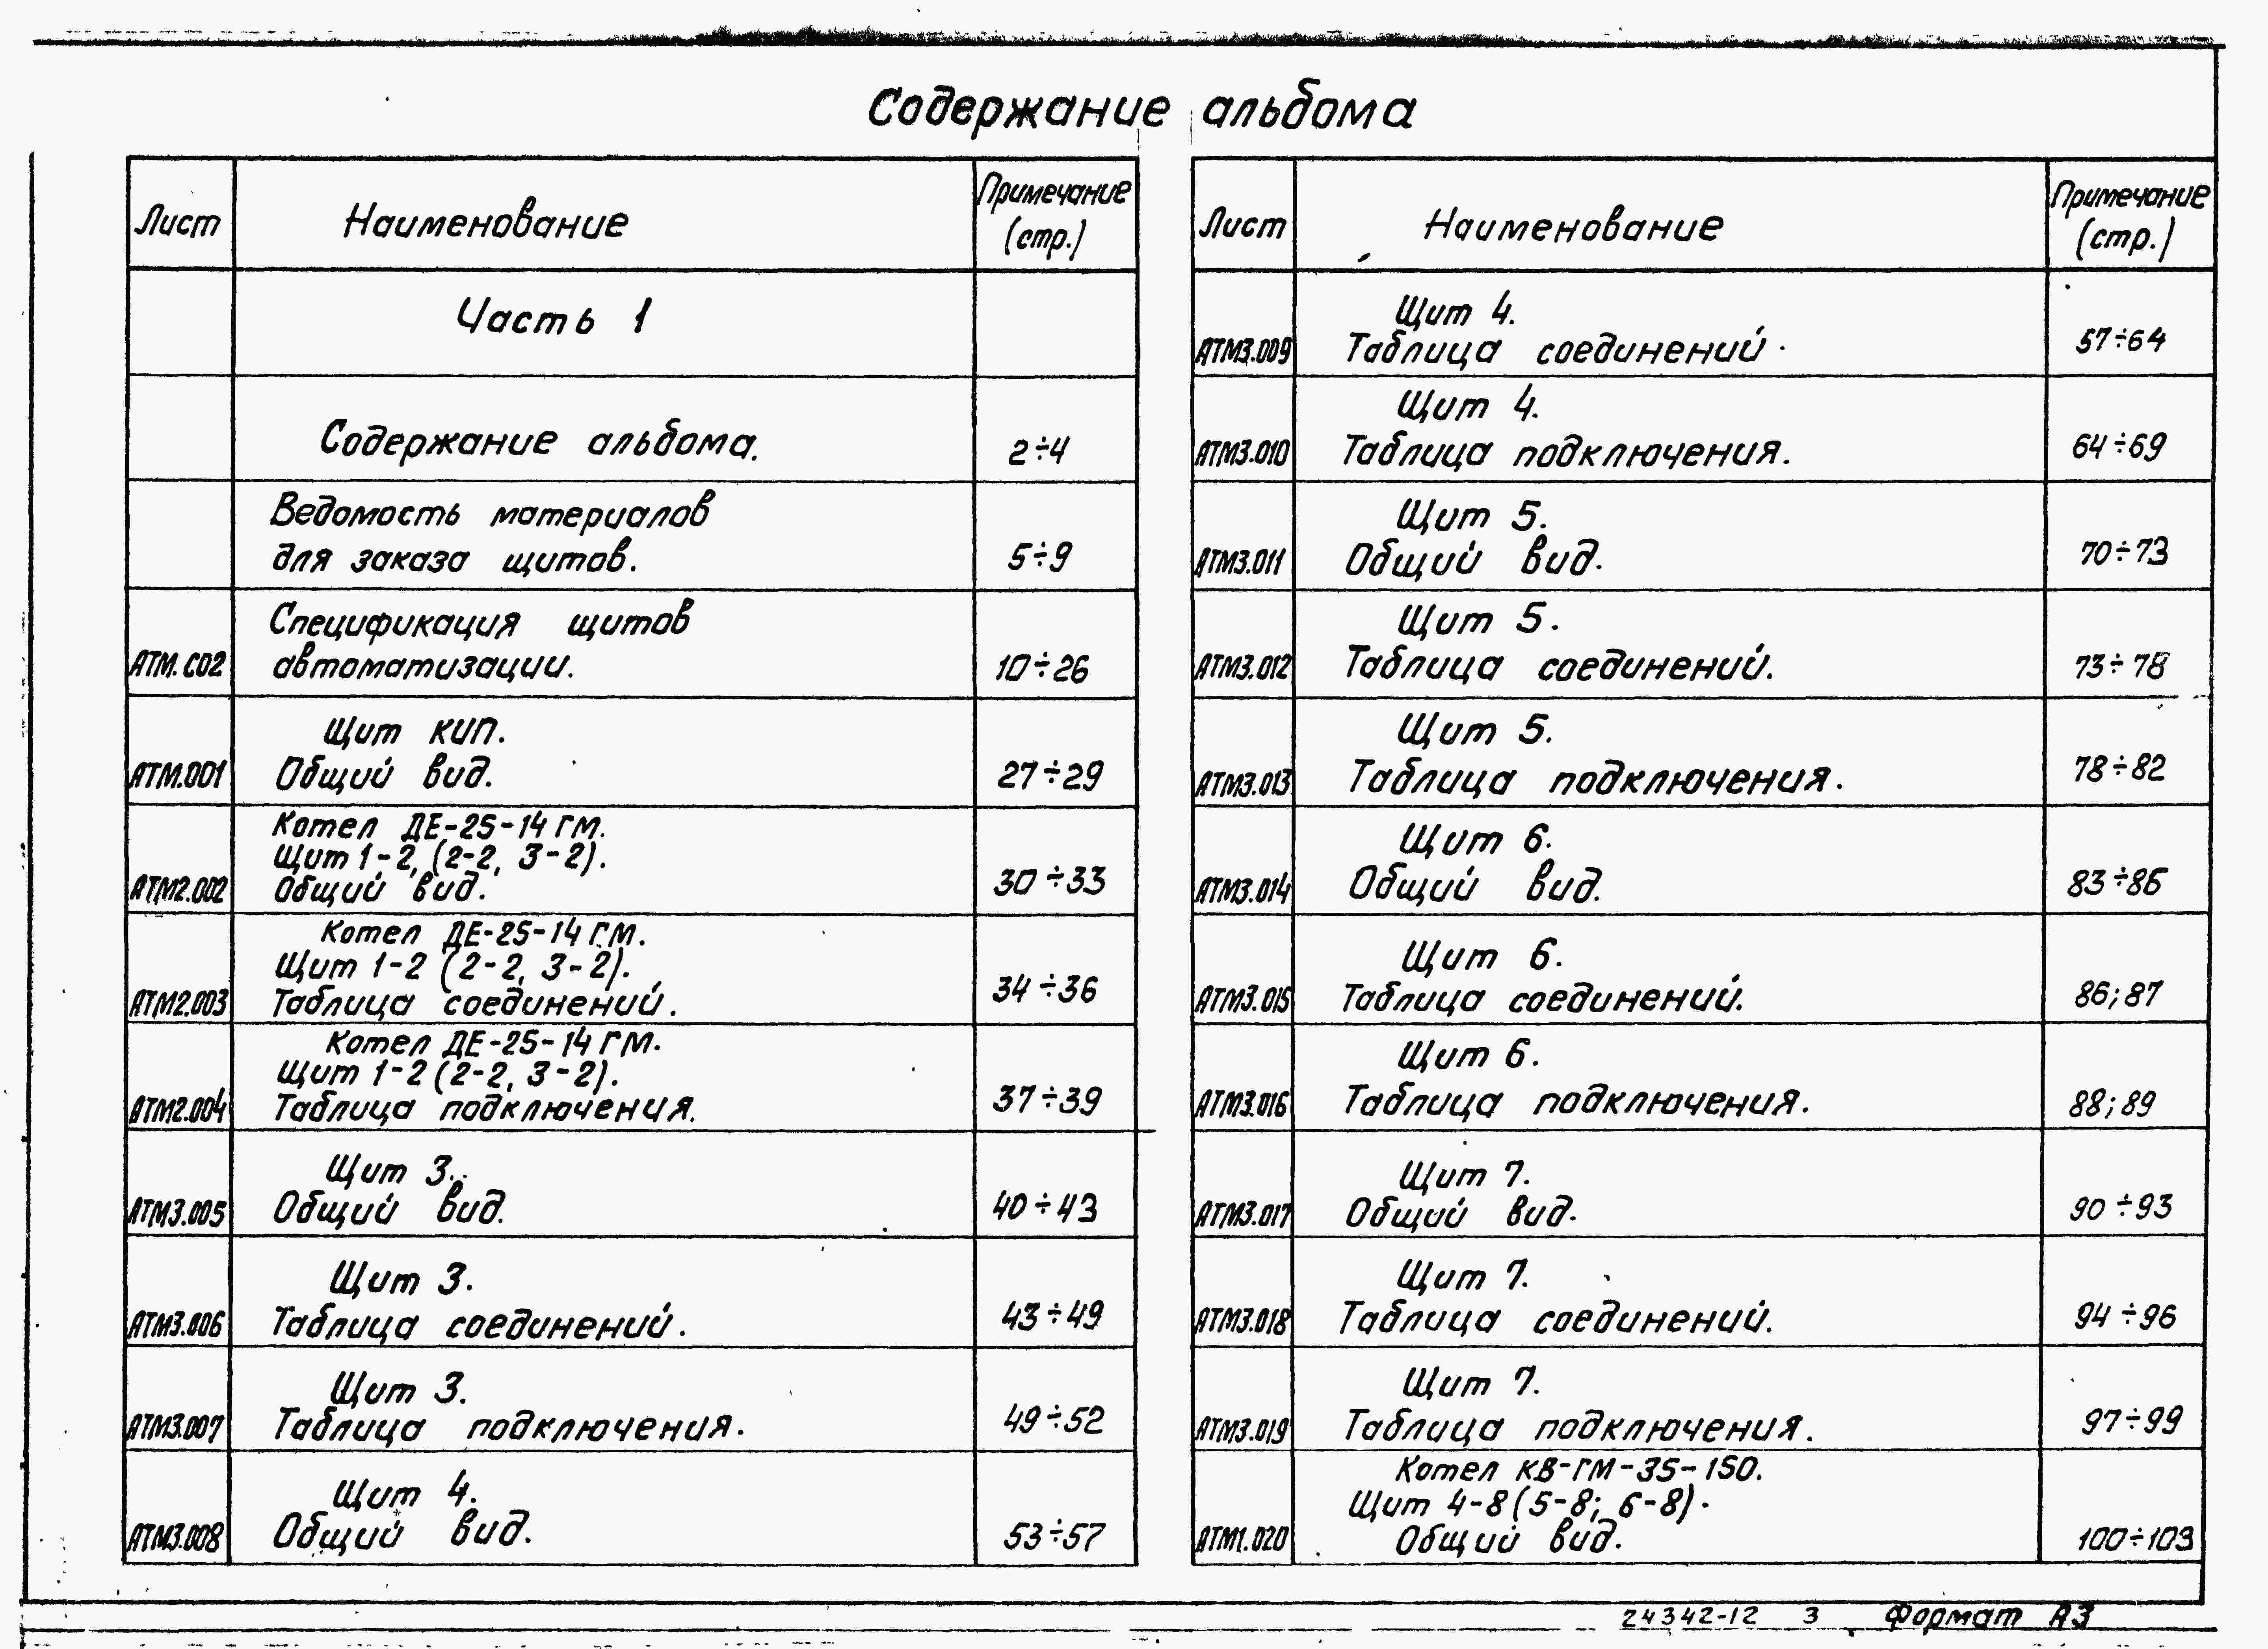 Содержание альбома
Лист
Наименование
Примечание
(стр.)
Часть 1
Содержание альбома.
2÷4
Ведомость материалов
для заказа щитов.
5÷9
Спецификация щитов
АТМ.С02 автоматизации. 10÷26
Щит КИП.
АТМ.001 Общий вид. 27÷29
Котел ДЕ-25-14 ГМ.
Щит 1-2, (2-2, 3-2).
АТМ2.002 Общий вид. 30÷33
Котел ДЕ-25-14 ГМ.
Щит 1-2 (2-2, 3-2).
АТМ2.003 Таблица соединений. 34÷36
Котел ДЕ-25-14 ГМ.
Щит 1-2 (2-2, 3-2).
АТМ2.004 Таблица подключения. 37÷39
Щит 3.
АТМ3.005 Общий вид. 40÷43
Щит 3.
АТМ3.006 Таблица соединений. 43÷49
Щит 3.
АТМ3.007 Таблица подключения. 49÷52
Щит 4.
АТМ3.008 Общий вид. 53÷57
Лист
Наименование
Примечание
(стр.)
Щит 4.
АТМ3.009 Таблица соединений. 57÷64
Щит 4.
АТМ3.010 Таблица подключения. 64÷69
Щит 5.
АТМ3.011 Общий вид. 70÷73
Щит 5.
АТМ3.012 Таблица соединений. 73÷78
Щит 5.
АТМ3.013 Таблица подключения. 78÷82
Щит 6.
АТМ3.014 Общий вид. 83÷86
Щит 6.
АТМ3.015 Таблица соединений. 86; 87
Щит 6.
АТМ3.016 Таблица подключения. 88; 89
Щит 7.
АТМ3.017 Общий вид. 90÷93
Щит 7.
АТМ3.018 Таблица соединений. 94÷96
Щит 7.
АТМ3.019 Таблица подключения. 97÷99
Котел КВ-ГМ-35-150.
Щит 4-8 (5-8; 6-8).
АТМ1.020 Общий вид. 100÷103
24342-12 3 Формат А3